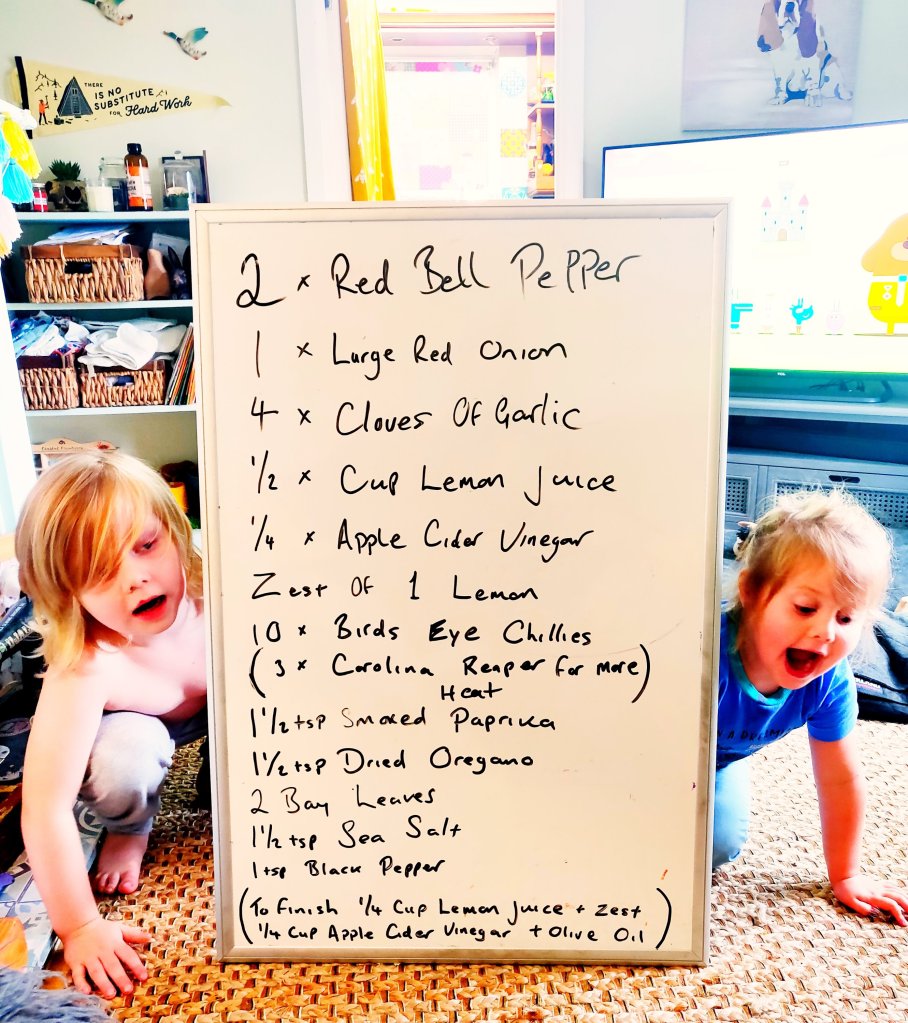 THERE
IS NO
SUBSTITUTE
FOR Hard Work
2 x Red Bell Pepper
1 x Large Red Onion
4 x Cloves Of Garlic
1/2 x Cup Lemon Juice
1/4 x Apple Cider Vinegar
Zest Of 1 Lemon
10 x Birds Eye Chillies
(3 x Carolina Reaper for more)
Heat
1 1/2 tsp Smoked Paprika
1 1/2 tsp Dried Oregano
2 Bay Leaves
1 1/2 tsp Sea Salt
1 tsp Black Pepper
(To Finish 1/4 Cup Lemon Juice + Zest
1/4 Cup Apple Cider Vinegar + Olive Oil)
TCL